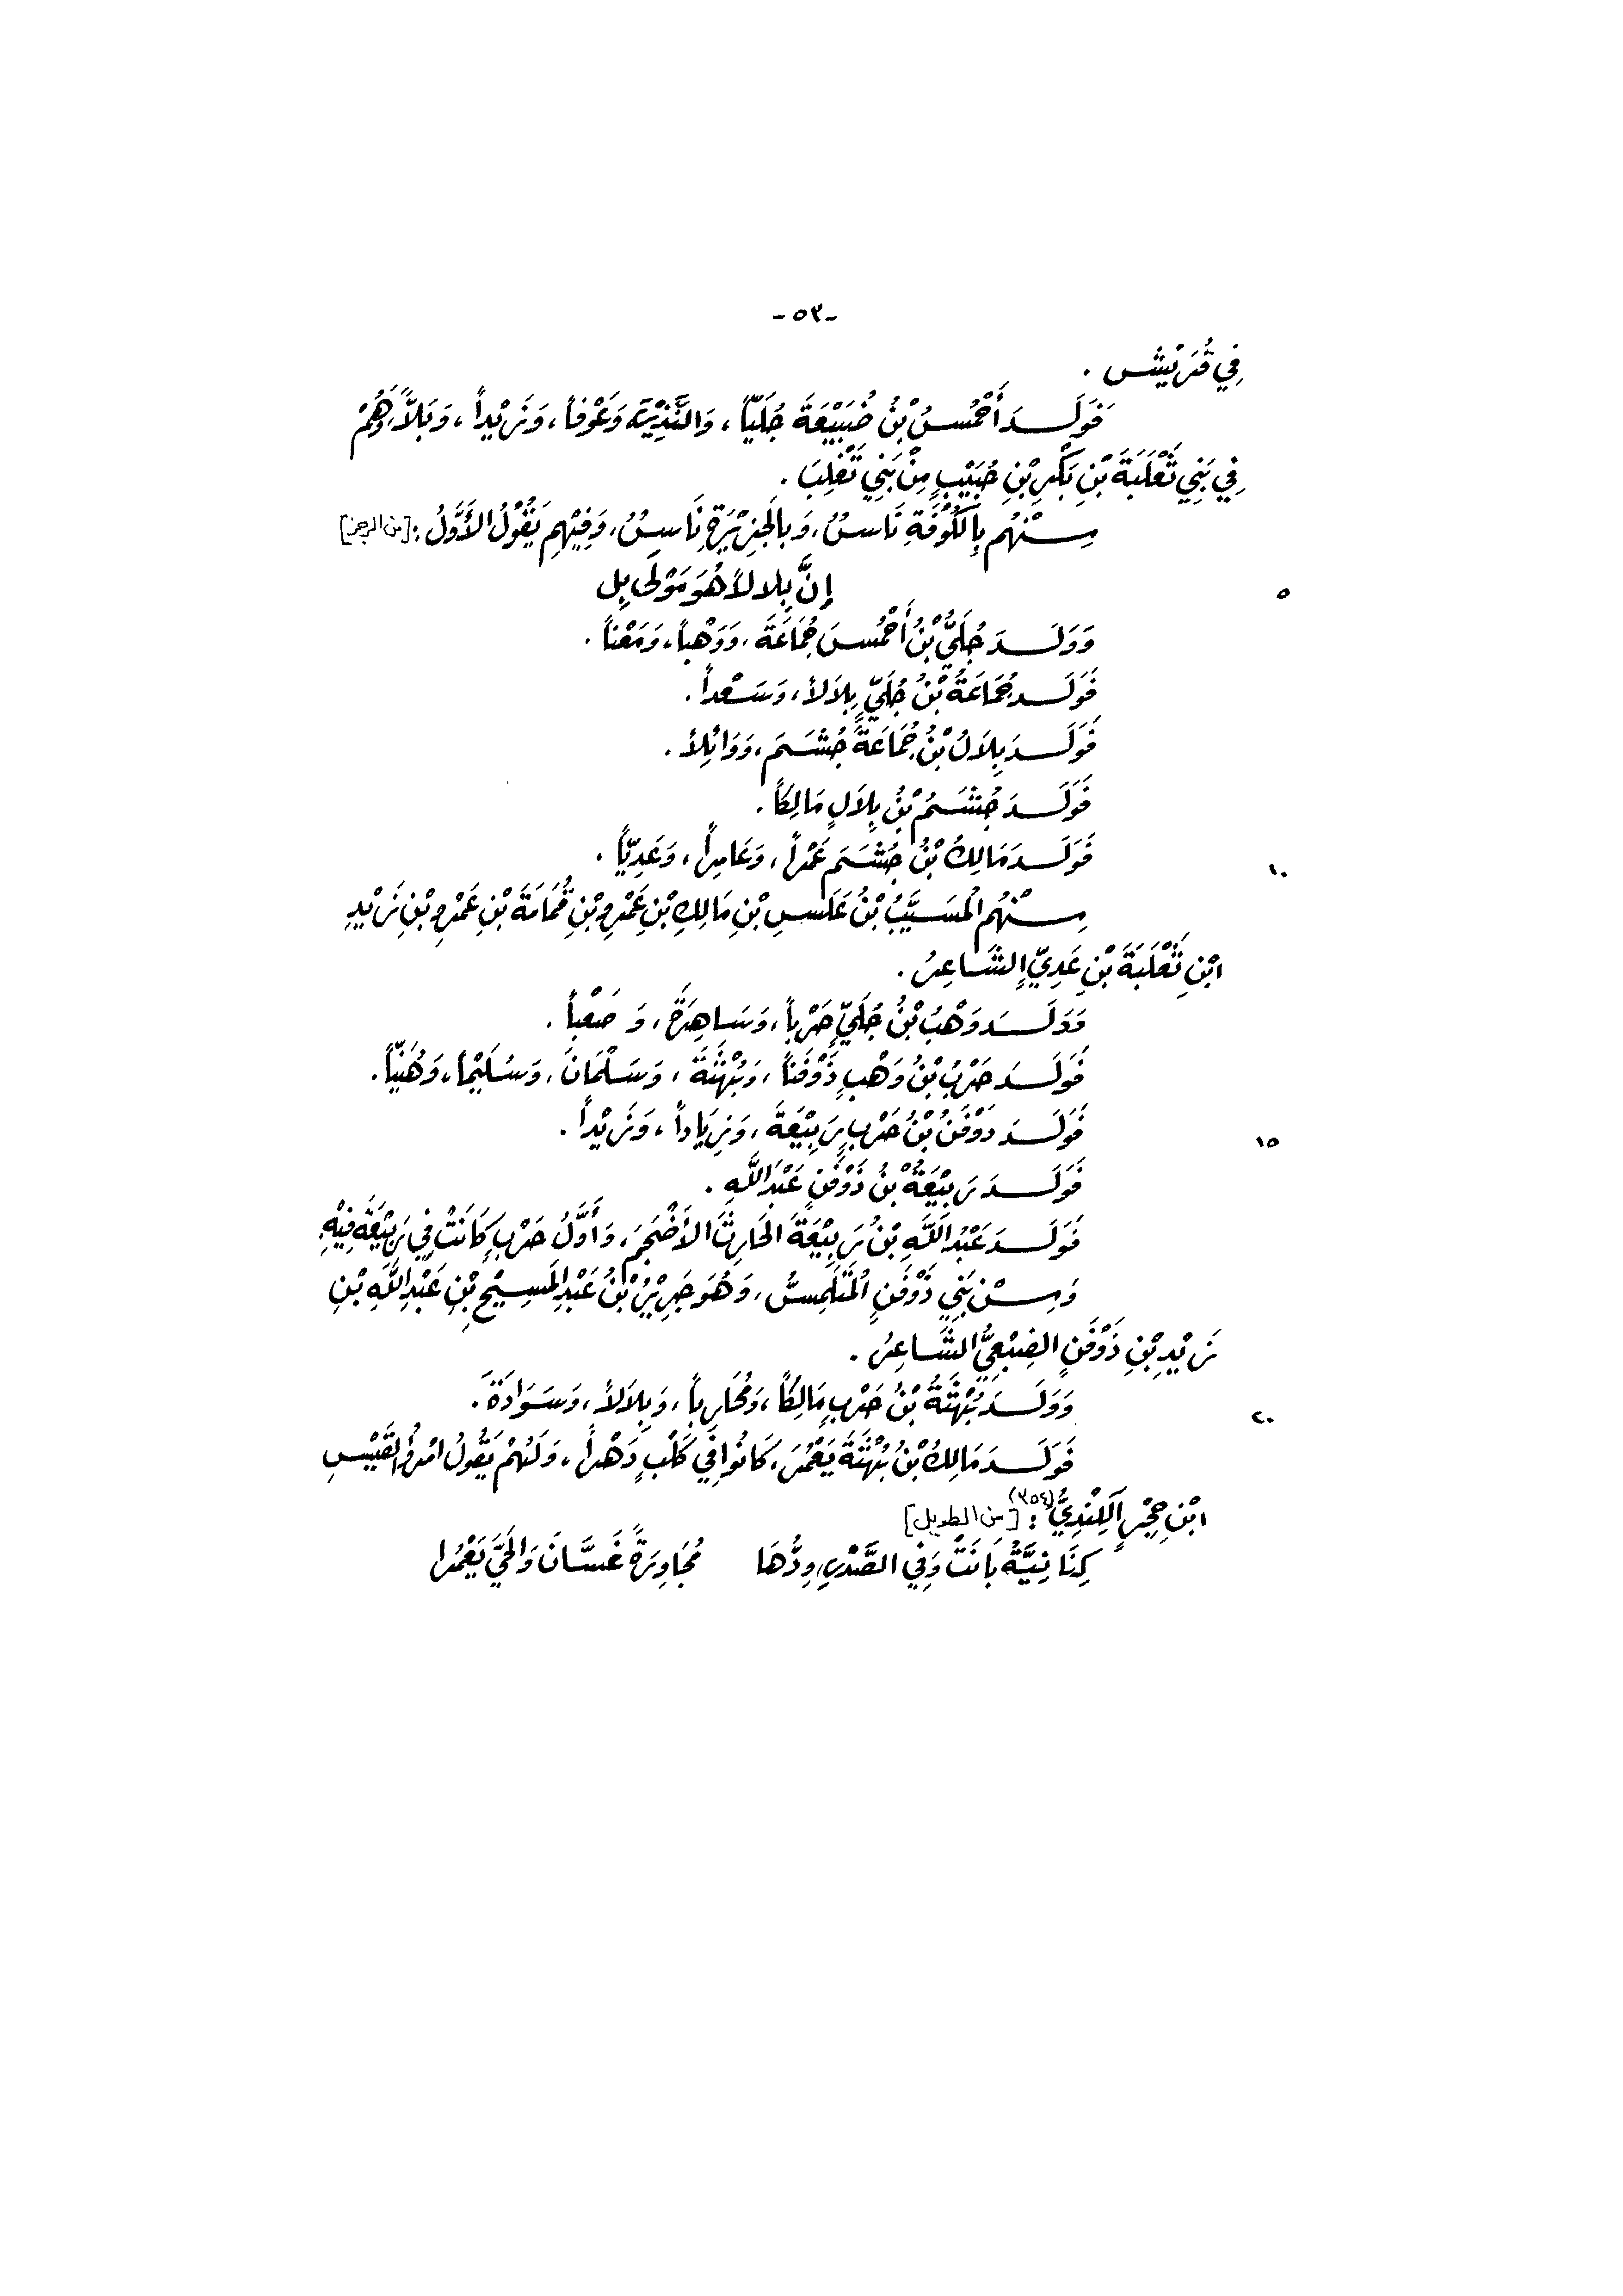 -٥٣-
فِي قُرَيْشٍ .
فَوَلَدَ أَحْمُسُ بْنُ ضُبَيْعَةَ جُلَيّاً، وَالنَّذِيْرَ وَعَوْفاً، وَزَيْداً، وَبَلاًّ، وَهُمْ
فِي بَنِي ثَعْلَبَةَ بْنِ بَكْرِ بْنِ حُبَيْبٍ مِنْ بَنِي تَغْلِبَ .
مِنْهُم بِالكُوْفَةِ نَاسٌ، وَبالجَزِيْرَةِ نَاسٌ، وَفِيْهِم يَقُوْلُ الأَوَّلُ : [من الرجز]
٥ إِنَّ بِلالاً هُوَ مَوْلَى بِلِ
وَوَلَدَ جُلَيُّ بْنُ أَحْمُسَ جُمَاعَةَ، وَوَهْباً، وَمَعْناً .
فَوَلَدَ جُمَاعَةُ بْنُ جُلَيٍّ بِلاَلاً، وَسَعْداً .
فَوَلَدَ بِلاَلُ بْنُ جُمَاعَةَ جُشَمَ، وَوَائِلاً .
فَوَلَدَ جُشَمُ بْنُ بِلاَلٍ مَالِكاً .
١٠ فَوَلَدَ مَالِكُ بْنُ جُشَمَ عَمْراً، وَعَامِراً، وَعَدِيّاً .
مِنْهُم المُسَيَّبُ بْنُ عَلَسِ بْنِ مَالِكِ بْنِ عَمْرِو بْنِ قُمَامَةَ بْنِ عَمْرِو بْنِ زَيْدِ
ابْنِ ثَعْلَبَةَ بْنِ عَدِيٍّ الشَّاعِرُ .
وَوَلَدَ وَهْبُ بْنُ جُلَيٍّ حَرْباً، وَسَاهِرَةَ، وَ صَعْباً .
فَوَلَدَ حَرْبُ بْنُ وَهْبٍ دَوْفَناً، وَبُهْثَةَ، وَسَلْمَانَ، وَسُلَيْماً، وَهُنَيّاً .
١٥ فَوَلَدَ دَوْفَنُ بْنُ حَرْبٍ رَبِيْعَةَ، وَزِيَاداً، وَزَيْداً .
فَوَلَدَ رَبِيْعَةُ بْنُ دَوْفَنٍ عَبْدَ اللَّهِ .
فَوَلَدَ عَبْدُ اللَّهِ بْنُ رَبِيْعَةَ الحَارِثَ الأَضْجَمَ، وَأَوَّلُ حَرْبٍ كَانَتْ فِي رَبِيْعَةَ فِيْهِ
وَمِنْ بَنِي دَوْفَنٍ المُتَلَمِّسُ، وَهُوَ جَرِيْرُ بْنُ عَبْدِ المَسِيْحِ بْنِ عَبْدِ اللَّهِ بْنِ
زَيْدِ بْنِ دَوْفَنٍ الضَّبُعِيُّ الشَّاعِرُ .
٢٠ وَوَلَدَ بُهْثَةُ بْنُ حَرْبٍ مَالِكاً، وَمُحَارِباً، وَبِلاَلاً، وَسَوَادَةَ .
فَوَلَدَ مَالِكُ بْنُ بُهْثَةَ يَعْمُرَ، كَانُوا فِي كَلْبٍ دَهْراً، وَلَهُمْ يَقُولُ امْرُؤُ القَيْسِ
ابْنِ حُجْرٍ الكِنْدِيُّ (٣٥٤) : [من الطويل]
كِنَانِيَّةٌ بَانَتْ وَفِي الصَّدْرِ وِدُّهَا مُجَاوِرَةً غَسَّانَ وَالحَيَّ يَعْمُرا